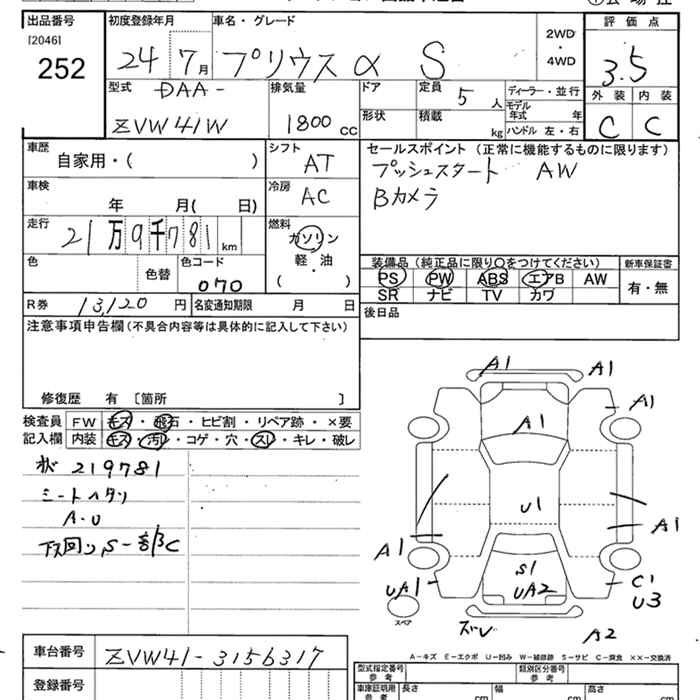 出品番号
[2046]
252
初度登録年月
24 7月
車名・グレード
プリウスα S
2WD
・
4WD
評価点
3.5
外装 内装
C C
型式 DAA-
ZVW41W
排気量
1800 cc
ドア
形状
定員 5 人
積載 kg
ディーラー・並行
モデル
年式 年
ハンドル 左・右
車歴
自家用・( )
シフト
AT
冷房
AC
車検
年 月( 日)
走行
21万9千781 km
燃料
ガソリン
軽・油
( )
色
色替
色コード
070
R券 13,120 円
名変通知期限 月 日
セールスポイント (正常に機能するものに限ります)
プッシュスタート AW
Bカメラ
装備品 (純正品に限り○をつけてください)
PS PW ABS エアB AW
SR ナビ TV カワ
新車保証書
有・無
後日品
注意事項申告欄 (不具合内容等は具体的に記入して下さい)
修復歴 有 〔箇所 〕
検査員
記入欄
FW キズ・飛石・ヒビ割・リペア跡・×要
内装 キズ・汚レ・コゲ・穴・スレ・キレ・破レ
219781
シートヘタリ
A・U
下回り,S 一部C
A1
A1
A1
A1
U1
A1
A1
S1
UA2
UA1
C1
U3
スペア
ズレ
A2
A-キズ E-エクボ U-凹み W-補修跡 S-サビ C-腐食 ××-交換済
車台番号
ZVW41-3156317
登録番号
型式指定番号
参考
類別区分番号
参考
車庫証明用
参考
長さ cm
幅 cm
高さ cm